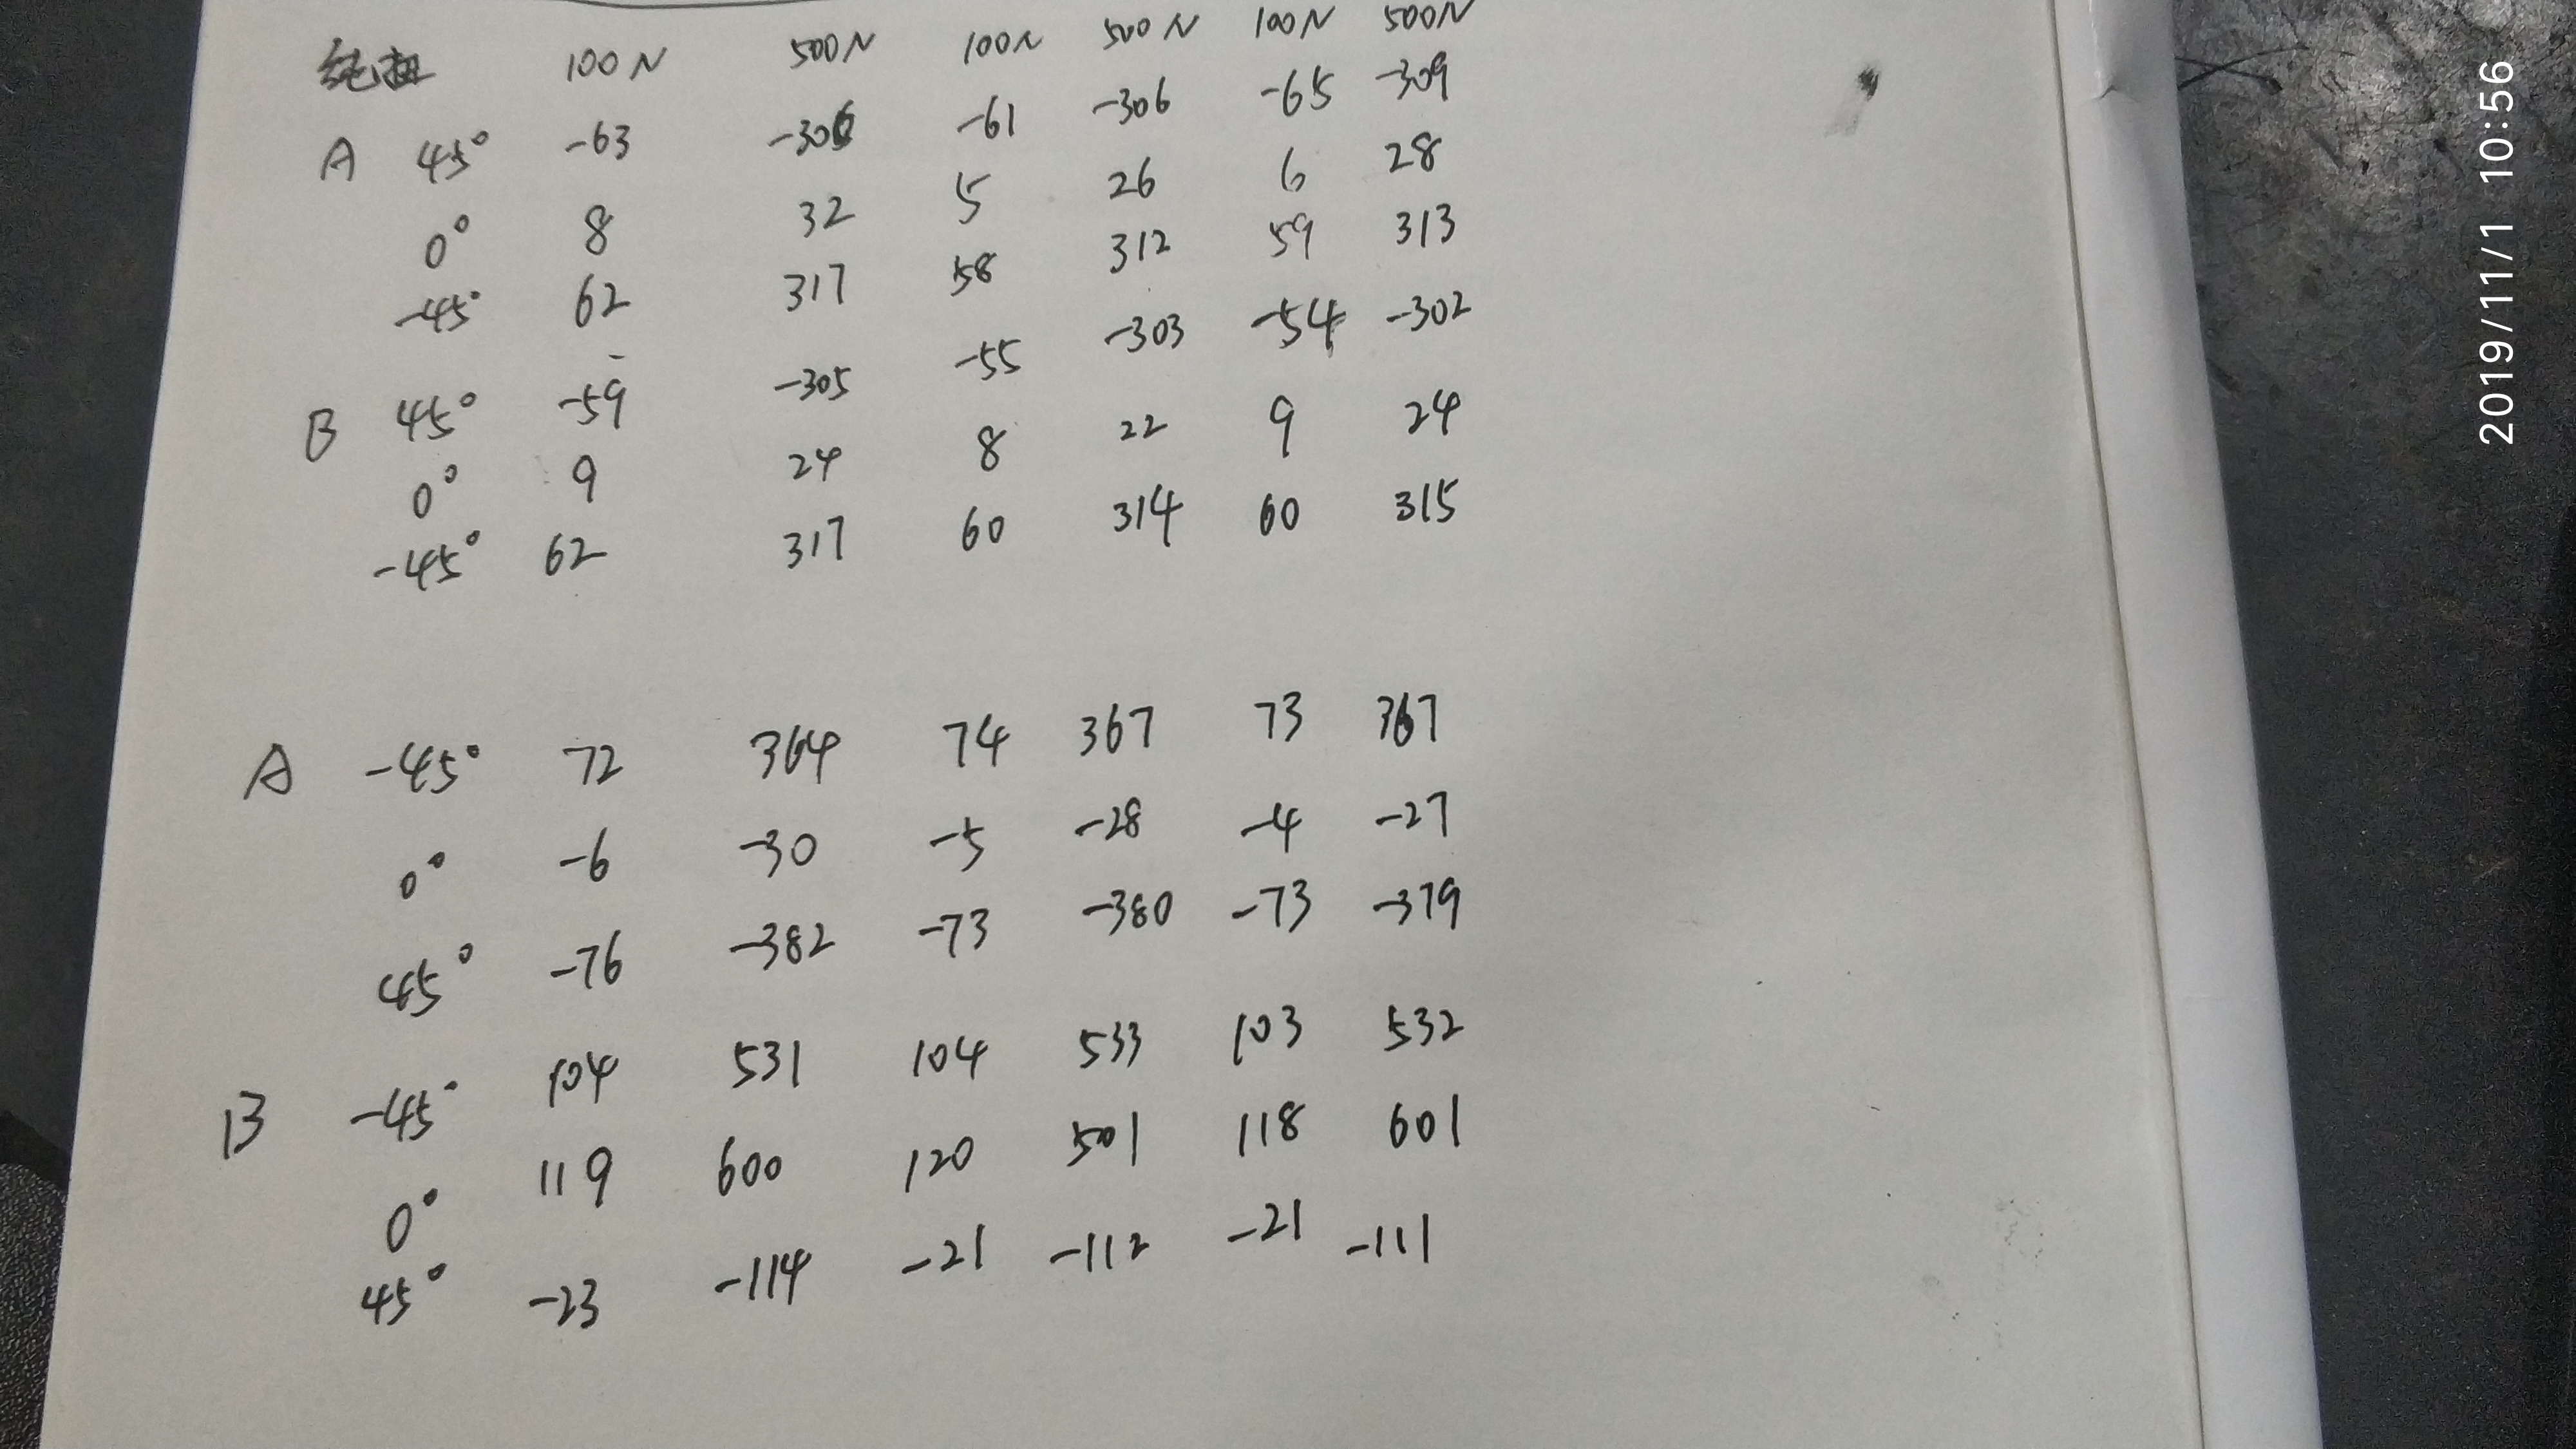 100N 500N 100N 500N 100N 500N
A 45° -63 -306 -61 -306 -65 -309
0° 8 32 5 26 6 28
-45° 62 317 58 312 59 313
B 45° -59 -305 -55 -303 -54 -302
0° 9 24 8 22 9 24
-45° 62 317 60 314 60 315
A -45° 72 364 74 367 73 367
0° -6 -30 -5 -28 -4 -27
45° -76 -382 -73 -380 -73 -379
B -45° 104 531 104 533 103 532
0° 119 600 120 118 601
45° -23 -114 -21 -112 -21 -111
2019/11/1 10:56